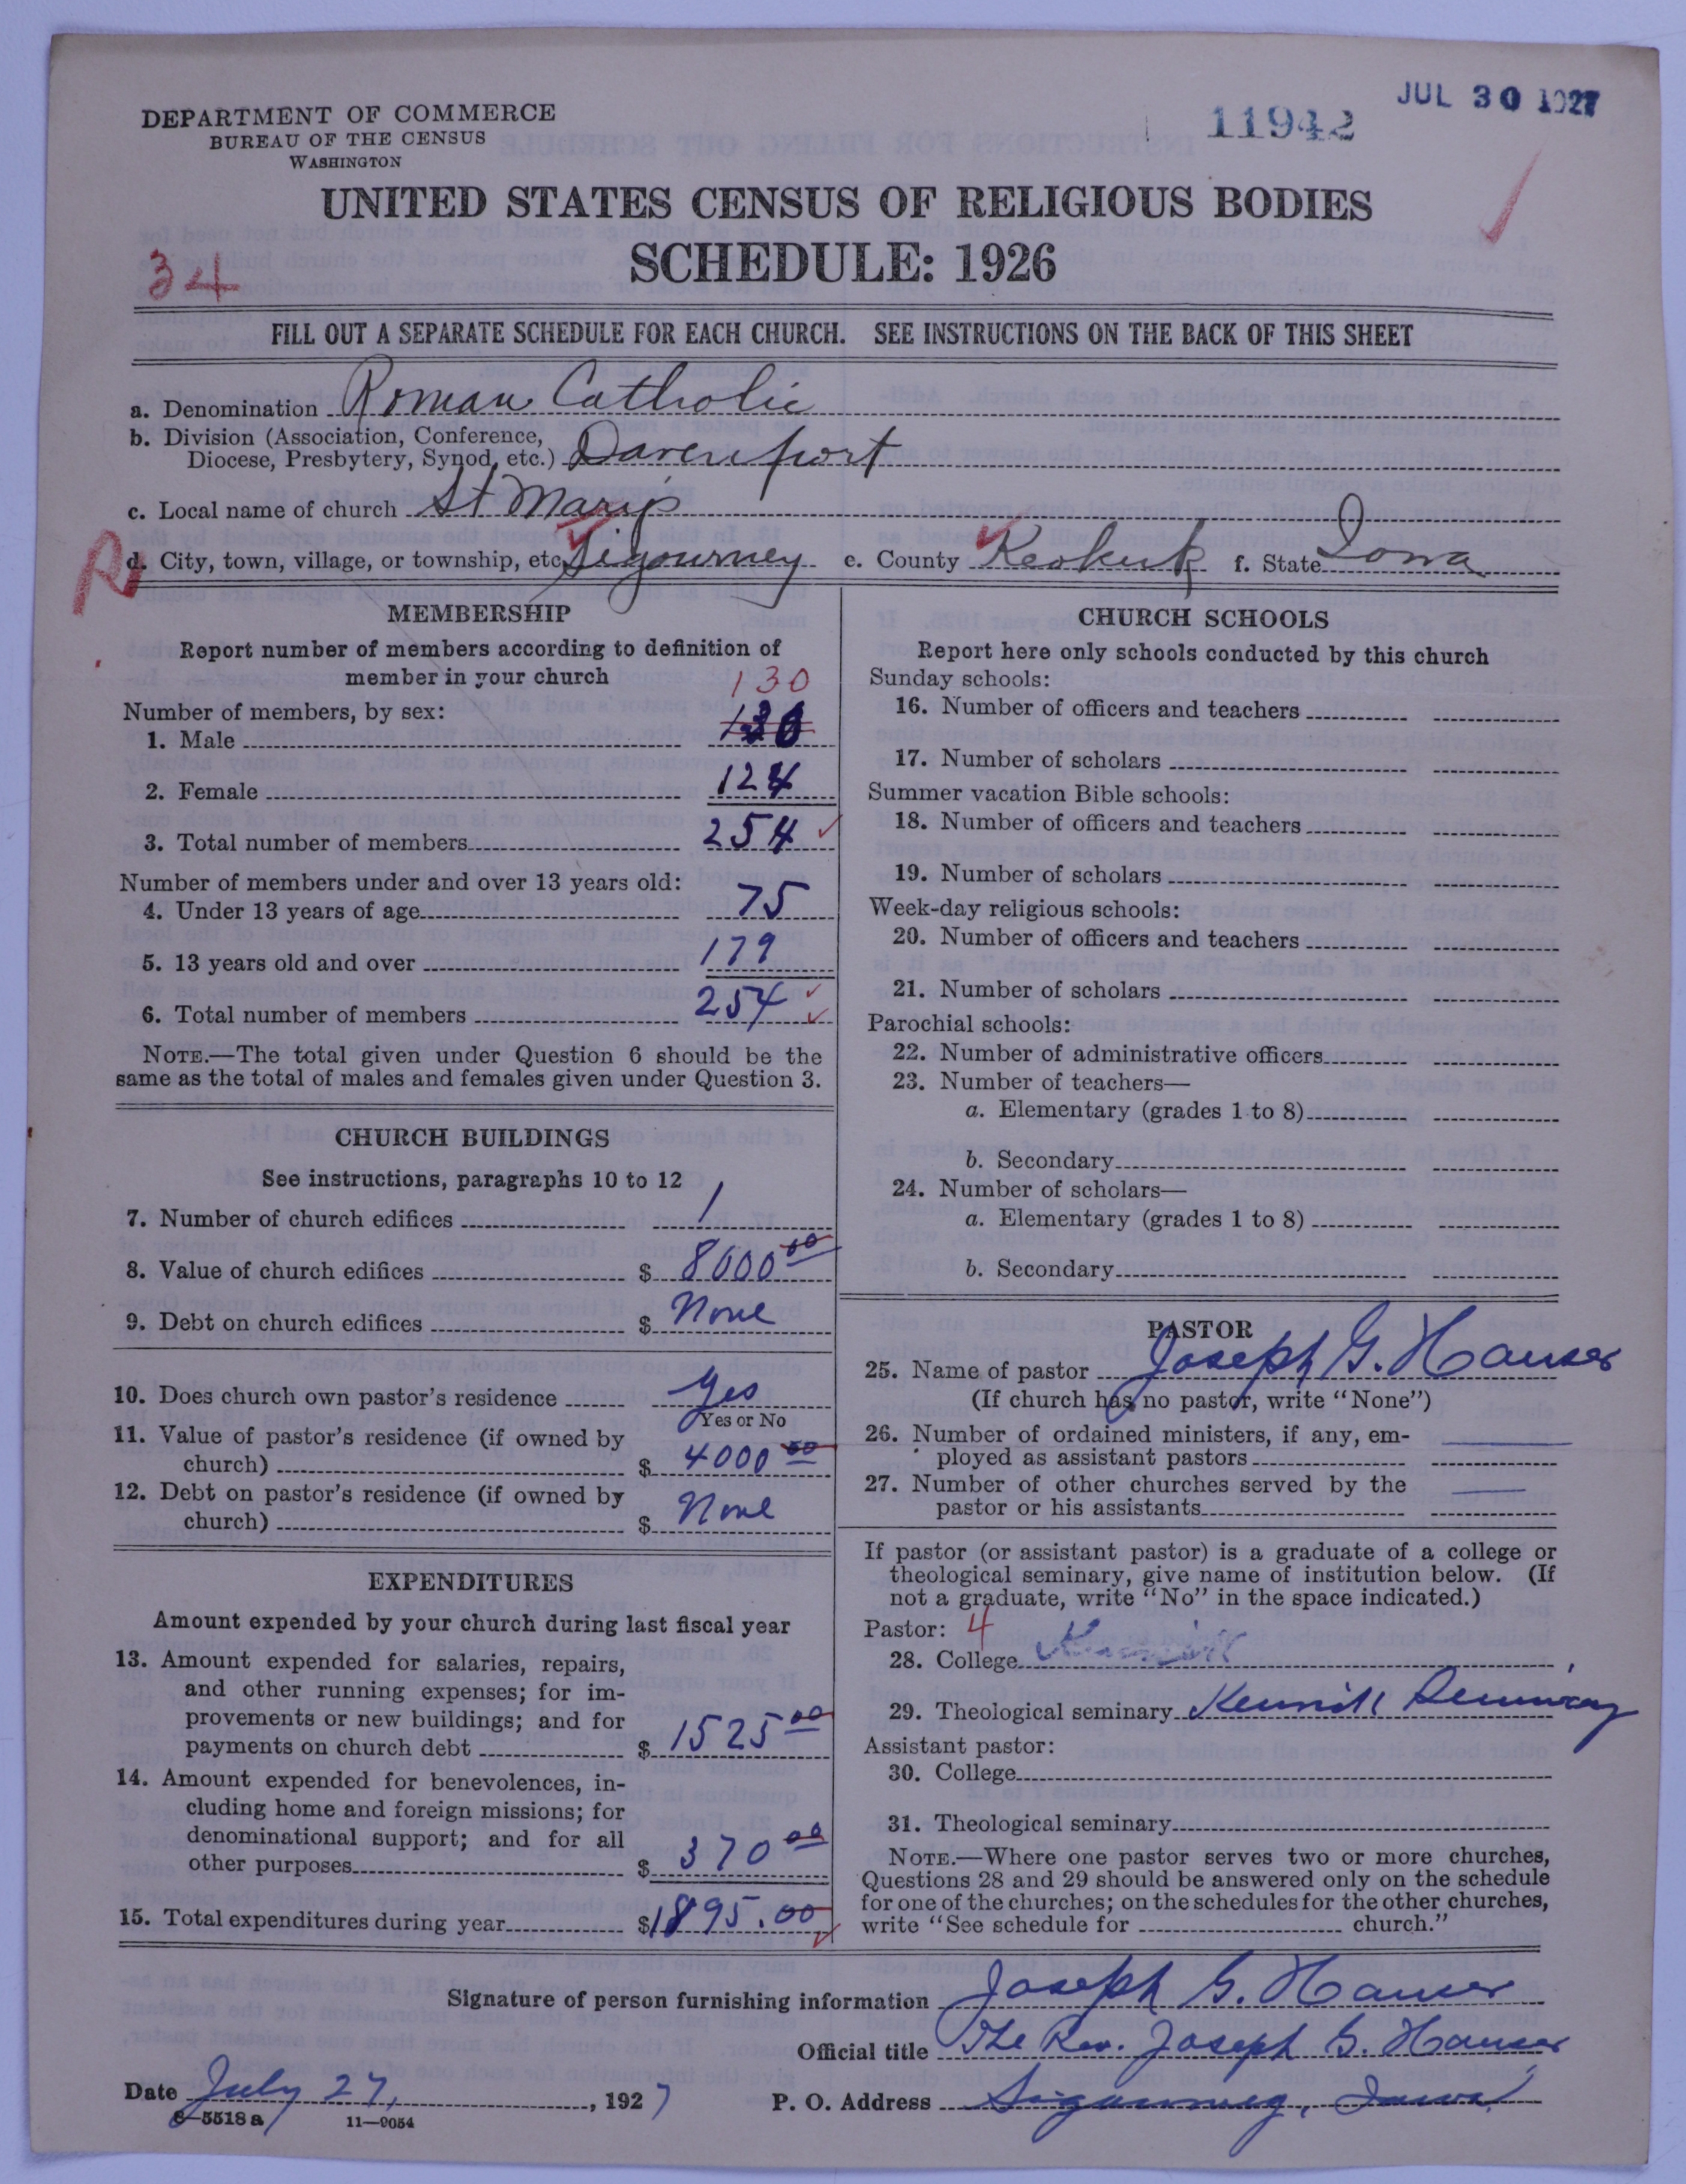 JUL 30 1927
11942
DEPARTMENT OF COMMERCE
BUREAU OF THE CENSUS
WASHINGTON
UNITED STATES CENSUS OF RELIGIOUS BODIES
SCHEDULE: 1926
34
FILL OUT A SEPARATE SCHEDULE FOR EACH CHURCH. SEE INSTRUCTIONS ON THE BACK OF THIS SHEET
a. Denomination Roman Catholic
b. Division (Association, Conference,
Diocese, Presbytery, Synod, etc.) Davenport
c. Local name of church St Mary's
R
d. City, town, village, or township, etc. Sigourney e. County Keokuk f. State Iowa
MEMBERSHIP
Report number of members according to definition of
member in your church
130
Number of members, by sex:
1. Male 130
2. Female 124
3. Total number of members 254
Number of members under and over 13 years old:
4. Under 13 years of age 75
5. 13 years old and over 179
6. Total number of members 254
NOTE.—The total given under Question 6 should be the
same as the total of males and females given under Question 3.
CHURCH BUILDINGS
See instructions, paragraphs 10 to 12
7. Number of church edifices 1
8. Value of church edifices $ 8000 00
9. Debt on church edifices $ None
10. Does church own pastor's residence Yes
Yes or No
11. Value of pastor's residence (if owned by
church) $ 4000 00
12. Debt on pastor's residence (if owned by
church) $ None
EXPENDITURES
Amount expended by your church during last fiscal year
13. Amount expended for salaries, repairs,
and other running expenses; for im-
provements or new buildings; and for
payments on church debt $ 1525 00
14. Amount expended for benevolences, in-
cluding home and foreign missions; for
denominational support; and for all
other purposes $ 370 00
15. Total expenditures during year $ 1895.00
CHURCH SCHOOLS
Report here only schools conducted by this church
Sunday schools:
16. Number of officers and teachers
17. Number of scholars
Summer vacation Bible schools:
18. Number of officers and teachers
19. Number of scholars
Week-day religious schools:
20. Number of officers and teachers
21. Number of scholars
Parochial schools:
22. Number of administrative officers
23. Number of teachers—
a. Elementary (grades 1 to 8)
b. Secondary
24. Number of scholars—
a. Elementary (grades 1 to 8)
b. Secondary
PASTOR
25. Name of pastor Joseph G. Hauser
(If church has no pastor, write "None")
26. Number of ordained ministers, if any, em-
ployed as assistant pastors
27. Number of other churches served by the
pastor or his assistants
If pastor (or assistant pastor) is a graduate of a college or
theological seminary, give name of institution below. (If
not a graduate, write "No" in the space indicated.)
Pastor: 4
28. College
29. Theological seminary Kenrick Seminary
Assistant pastor:
30. College
31. Theological seminary
NOTE.—Where one pastor serves two or more churches,
Questions 28 and 29 should be answered only on the schedule
for one of the churches; on the schedules for the other churches,
write "See schedule for church."
Signature of person furnishing information Joseph G. Hauser
Official title The Rev. Joseph G. Hauser
Date July 27, 1927 P. O. Address Sigourney, Iowa
8—5518a 11—9054